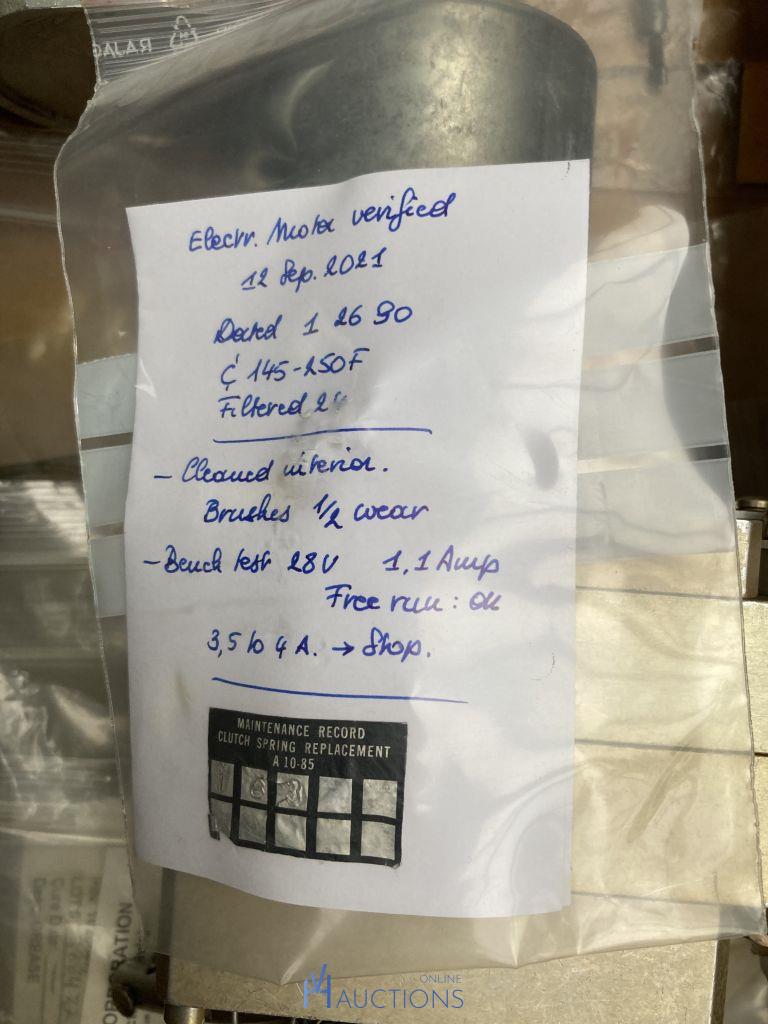 Electr. Motor verified
12 Sep. 2021
Dated 1 26 90
145-250F
Filtered
- Cleaned interior.
Brushes 1/2 wear
- Bench test 28V 1,1 Amp
Free run: OK
3,5 to 4 A. → Stop.
MAINTENANCE RECORD
CLUTCH SPRING REPLACEMENT
A 10-85
ONLINE
AUCTIONS